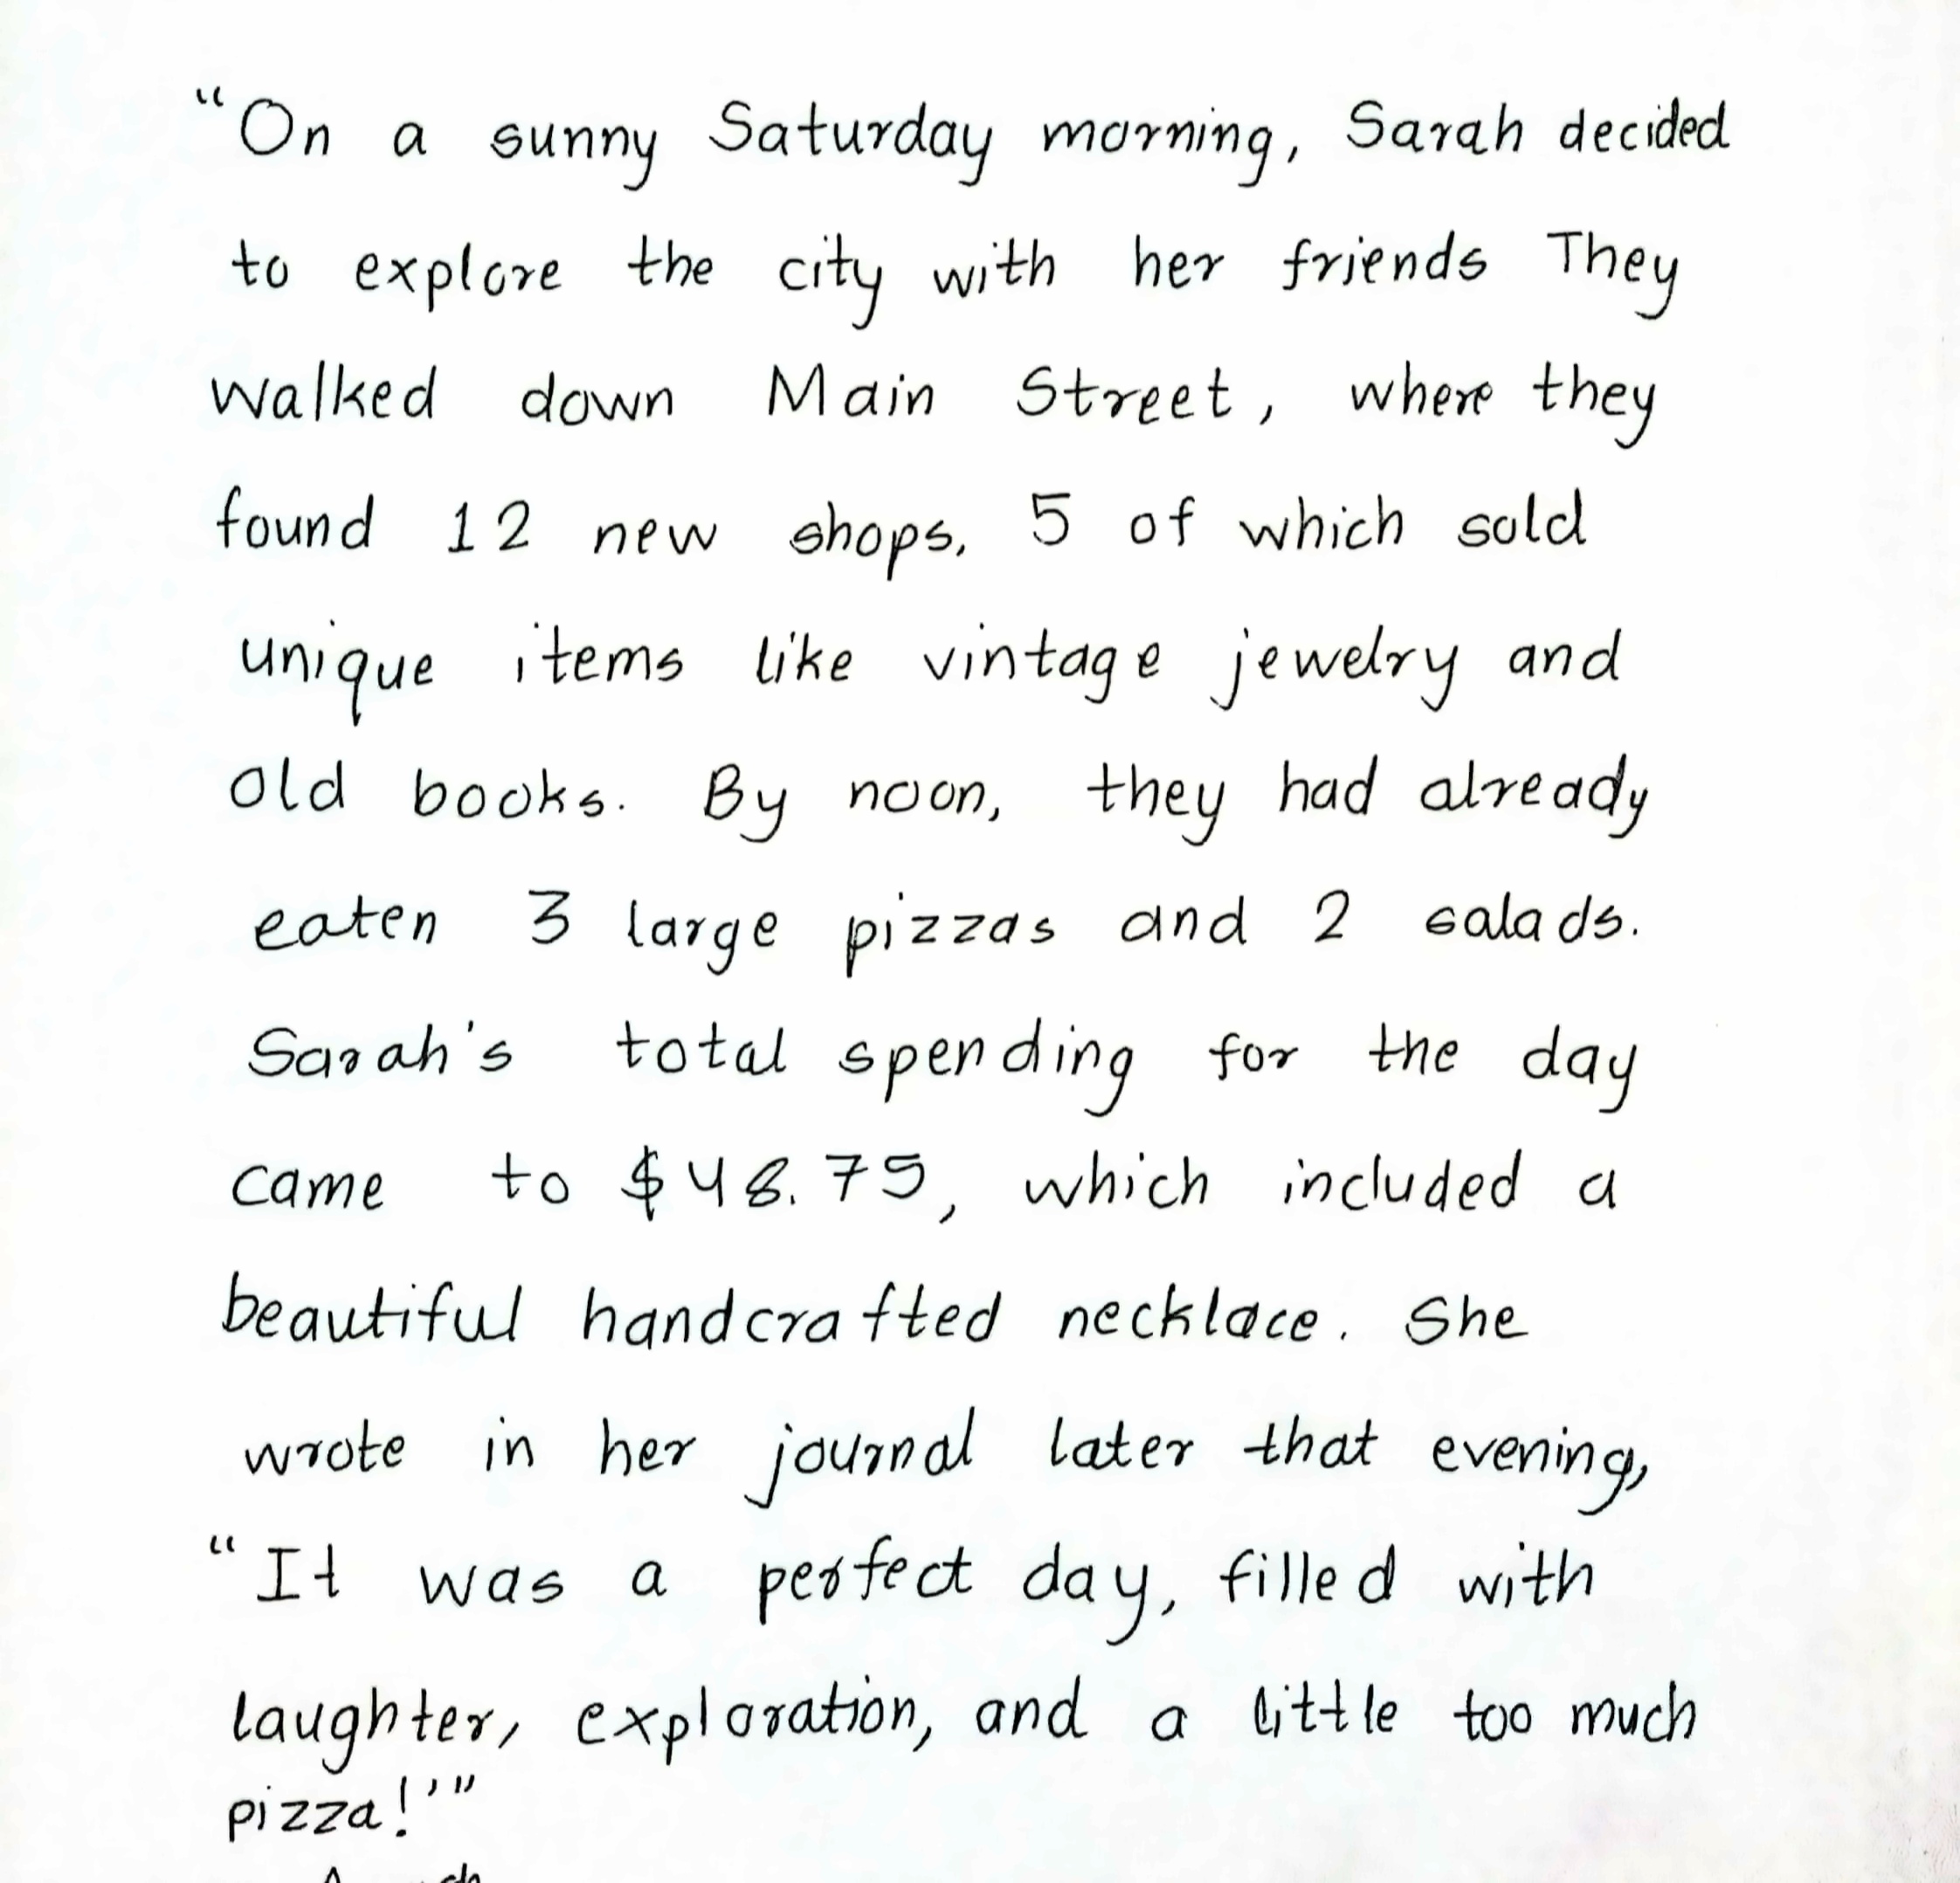 “On a sunny Saturday morning, Sarah decided
to explore the city with her friends They
walked down Main Street, where they
found 12 new shops, 5 of which sold
unique items like vintage jewelry and
old books. By noon, they had already
eaten 3 large pizzas and 2 salads.
Sarah's total spending for the day
came to $48.75, which included a
beautiful handcrafted necklace. She
wrote in her journal later that evening,
“It was a perfect day, filled with
laughter, exploration, and a little too much
pizza!’”